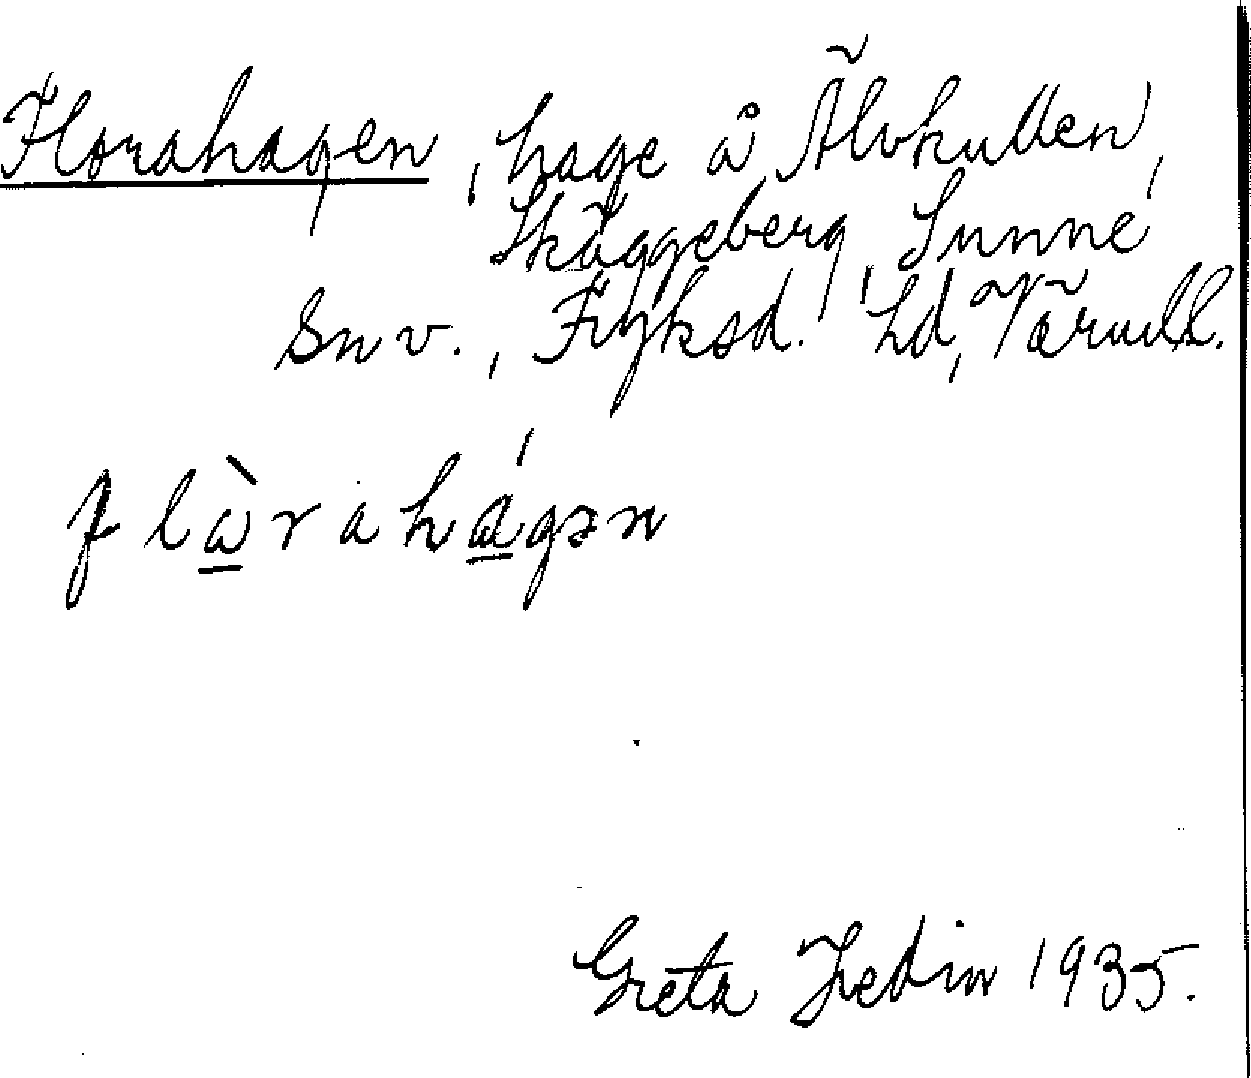 Florahagen, hage å Älvkullen,
Skäggeberg, Sunne
Snv., Fryksd. hd, Värml.
flɷ̀rahágən
Greta Hedin 1935.